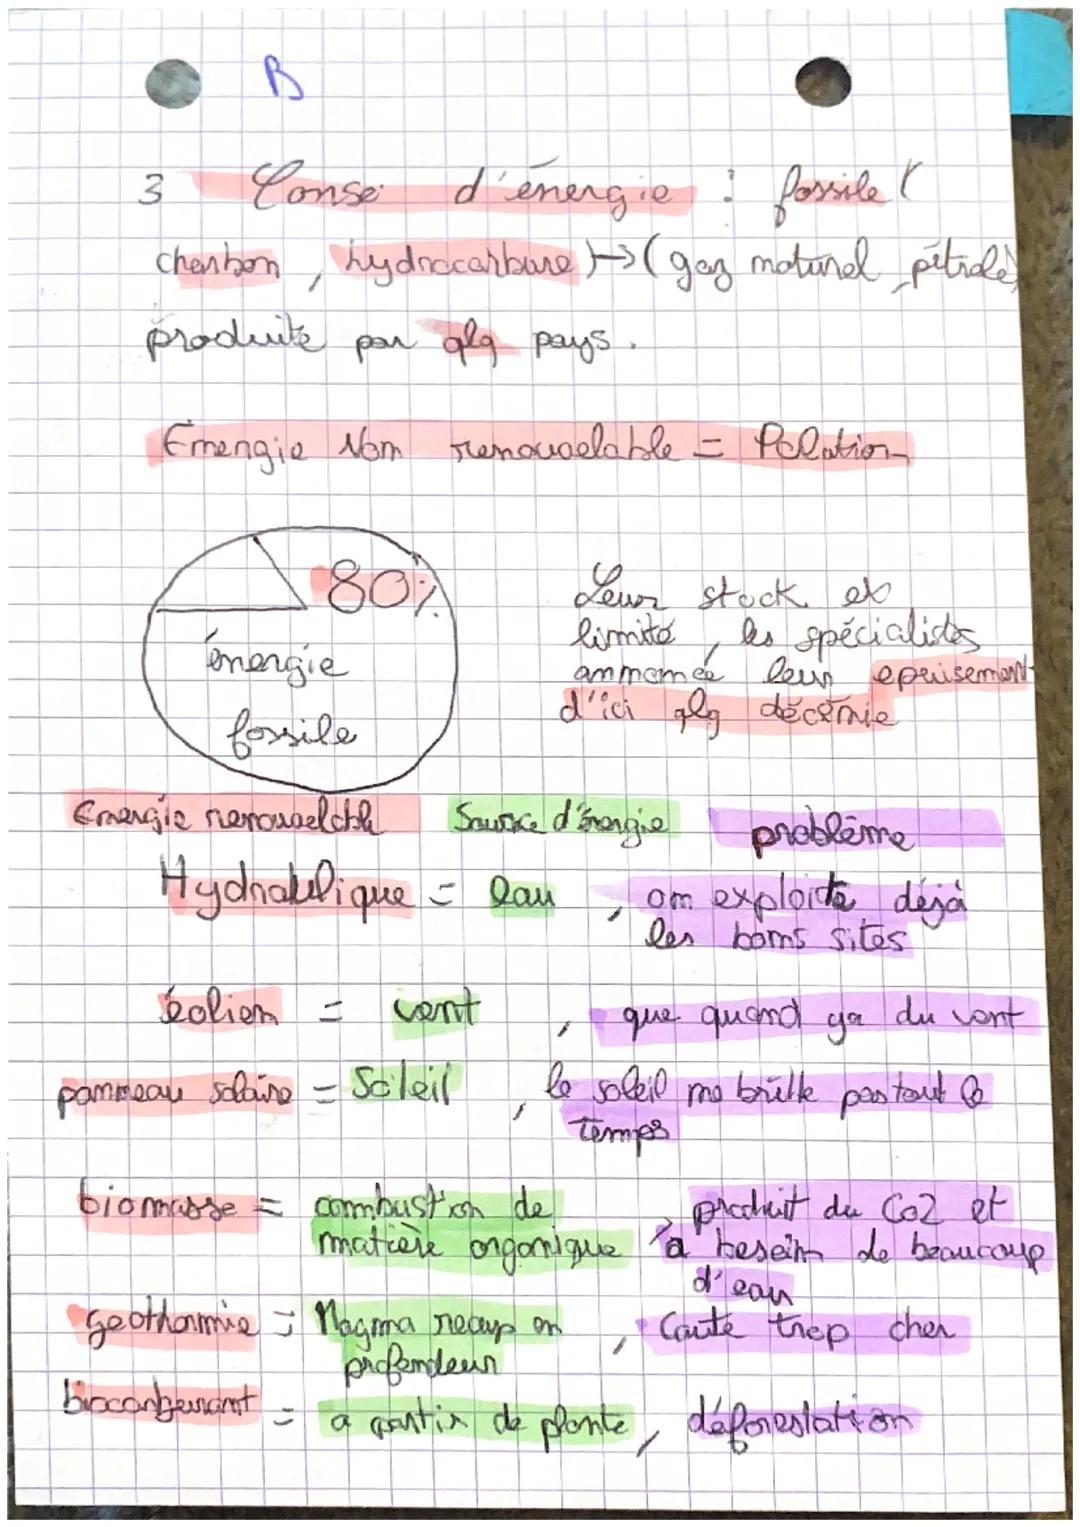 B
3 Conso d'énergie : fossile (
charbon, hydrocarbure) → (gaz naturel, pétrole)
produite par qlq pays.
Energie Non renouvelable = Polution
80%
énergie
fossile
Leur stock et
limité, les spécialistes
annoncée leur épuisement
d'ici qlq décénie
Energie renouvelable Source d'énergie problème
Hydraulique = eau, on exploite déjà
les bons sites
éolien = vent, que quand ya du vent
panneau solaire = Soleil, le soleil ne brille pas tout le
temps
biomasse = combustion de, produit du Co2 et
matière organique a besoin de beaucoup
d'eau
geothermie = Magma recup en, Coute trop cher
profondeur
biocarburant = a partir de plante, déforestation